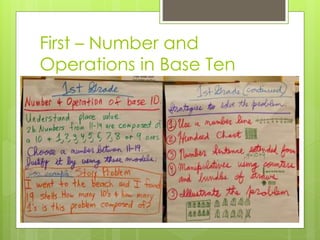 First – Number and
Operations in Base Ten
1st Grade
Number & Operation of base 10.
Understand place value
2b Numbers from 11-19 are composed of
a 10 + 1, 2, 3, 4, 5, 6, 7, 8 or 9 ones
Choose a number between 11-19
Justify it by using those models.
For example: Story Problem
I went to the beach and I found
19 shells. How many 10's & how many
1's is this problem composed of?
1st Grade (continued)
Strategies to solve the problem.
① Use a number line
② Hundred Chart
③ Numbers Sentence extended form
④ Manipulatives using counters
and bundles of straws
⑤ Illustrate the problem